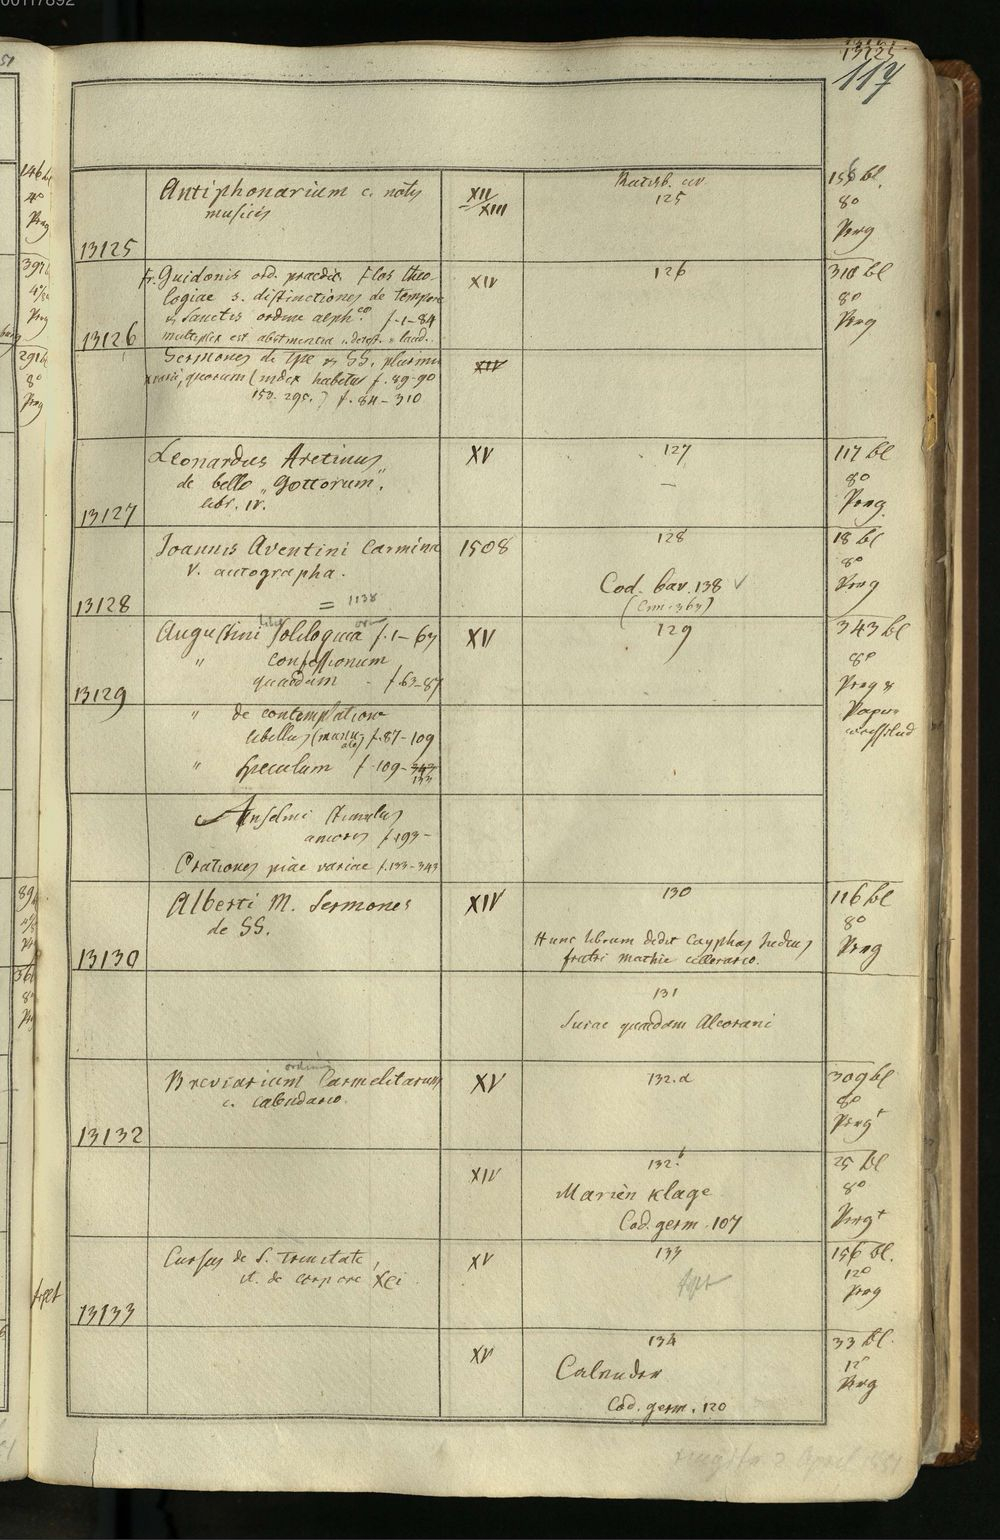 00117892
13125
117
Antiphonarium c. notis
musicis
XII
XIII
Ratisb. civ
125
155 bl.
8o
Perg
13125
Fr. Guidonis ord. praedic. Flos theo-
logiae s. distinctiones de tempore
& Sanctis ordine alph.co f. 1-84
multiplex est abstinentia
13126
XIV
126
310 bl
8o
Perg
Sermones de tpe & SS. plurimi
varii, quorum (index habetur f. 89-90
150. 295.) f. 84-310
XIV
Leonardus Aretinus
de bello „Gottorum“.
libr. IV.
13127
XV
127
117 bl
8o
Perg
Joannis Aventini Carmina
V. autographa.
= 1138
13128
1508
128
Cod. bav. 138
(Clm. 363)
18 bl
8o
Perg
Augustini Soliloquia f. 1-63
" confessionum
quaedam - f. 63-87
13129
XV
129
343 bl
8o
Perg &
Papier
" de contemplatione
libellus (manu-
ale) f. 87-109
" Speculum f. 109-343
133
Anselmi stimulus
amoris f. 193-
Orationes piae variae f. 133-343
Alberti M. Sermones
de SS.
13130
XIV
130
Hunc librum dedit Cayphas Judeus
fratri Mathie cellerario.
116 bl
8o
Perg
131
Surae quaedam Alcorani
ordinis
Breviarium Carmelitarum
c. calendario.
13132
XV
132.a
309 bl
8o
Perg
XIV
132.b
Marien klage
Cod. germ. 107
25 bl
8o
Perg
Cursus de S. Trinitate,
it. de corpore Xti
13133
XV
133
fehlt
156 bl.
12o
Perg
XV
134
Calender
Cod. germ. 120
33 bl.
12o
Perg
2 April